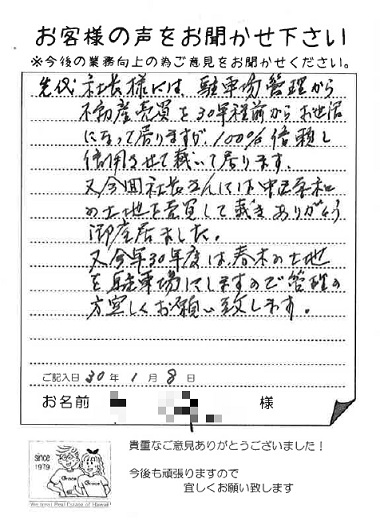 お客様の声をお聞かせ下さい
※今後の業務向上の為ご意見をお聞かせください。
先代社長様には、駐車場管理から
不動産売買を30年程前からお世話
になって居りますが、100%信頼し
信用させて戴いて居ります。
又今回社長さんには中正
の土地を売買して戴きありがとう
御座居ました。
又今年30年度は春木の土地
を駐車場にしますので管理の
方宜しくお願い致します。
ご記入日 30年 1月 8日
お名前 様
since
1979
Grace
Grace
貴重なご意見ありがとうございました!
今後も頑張りますので
宜しくお願い致します